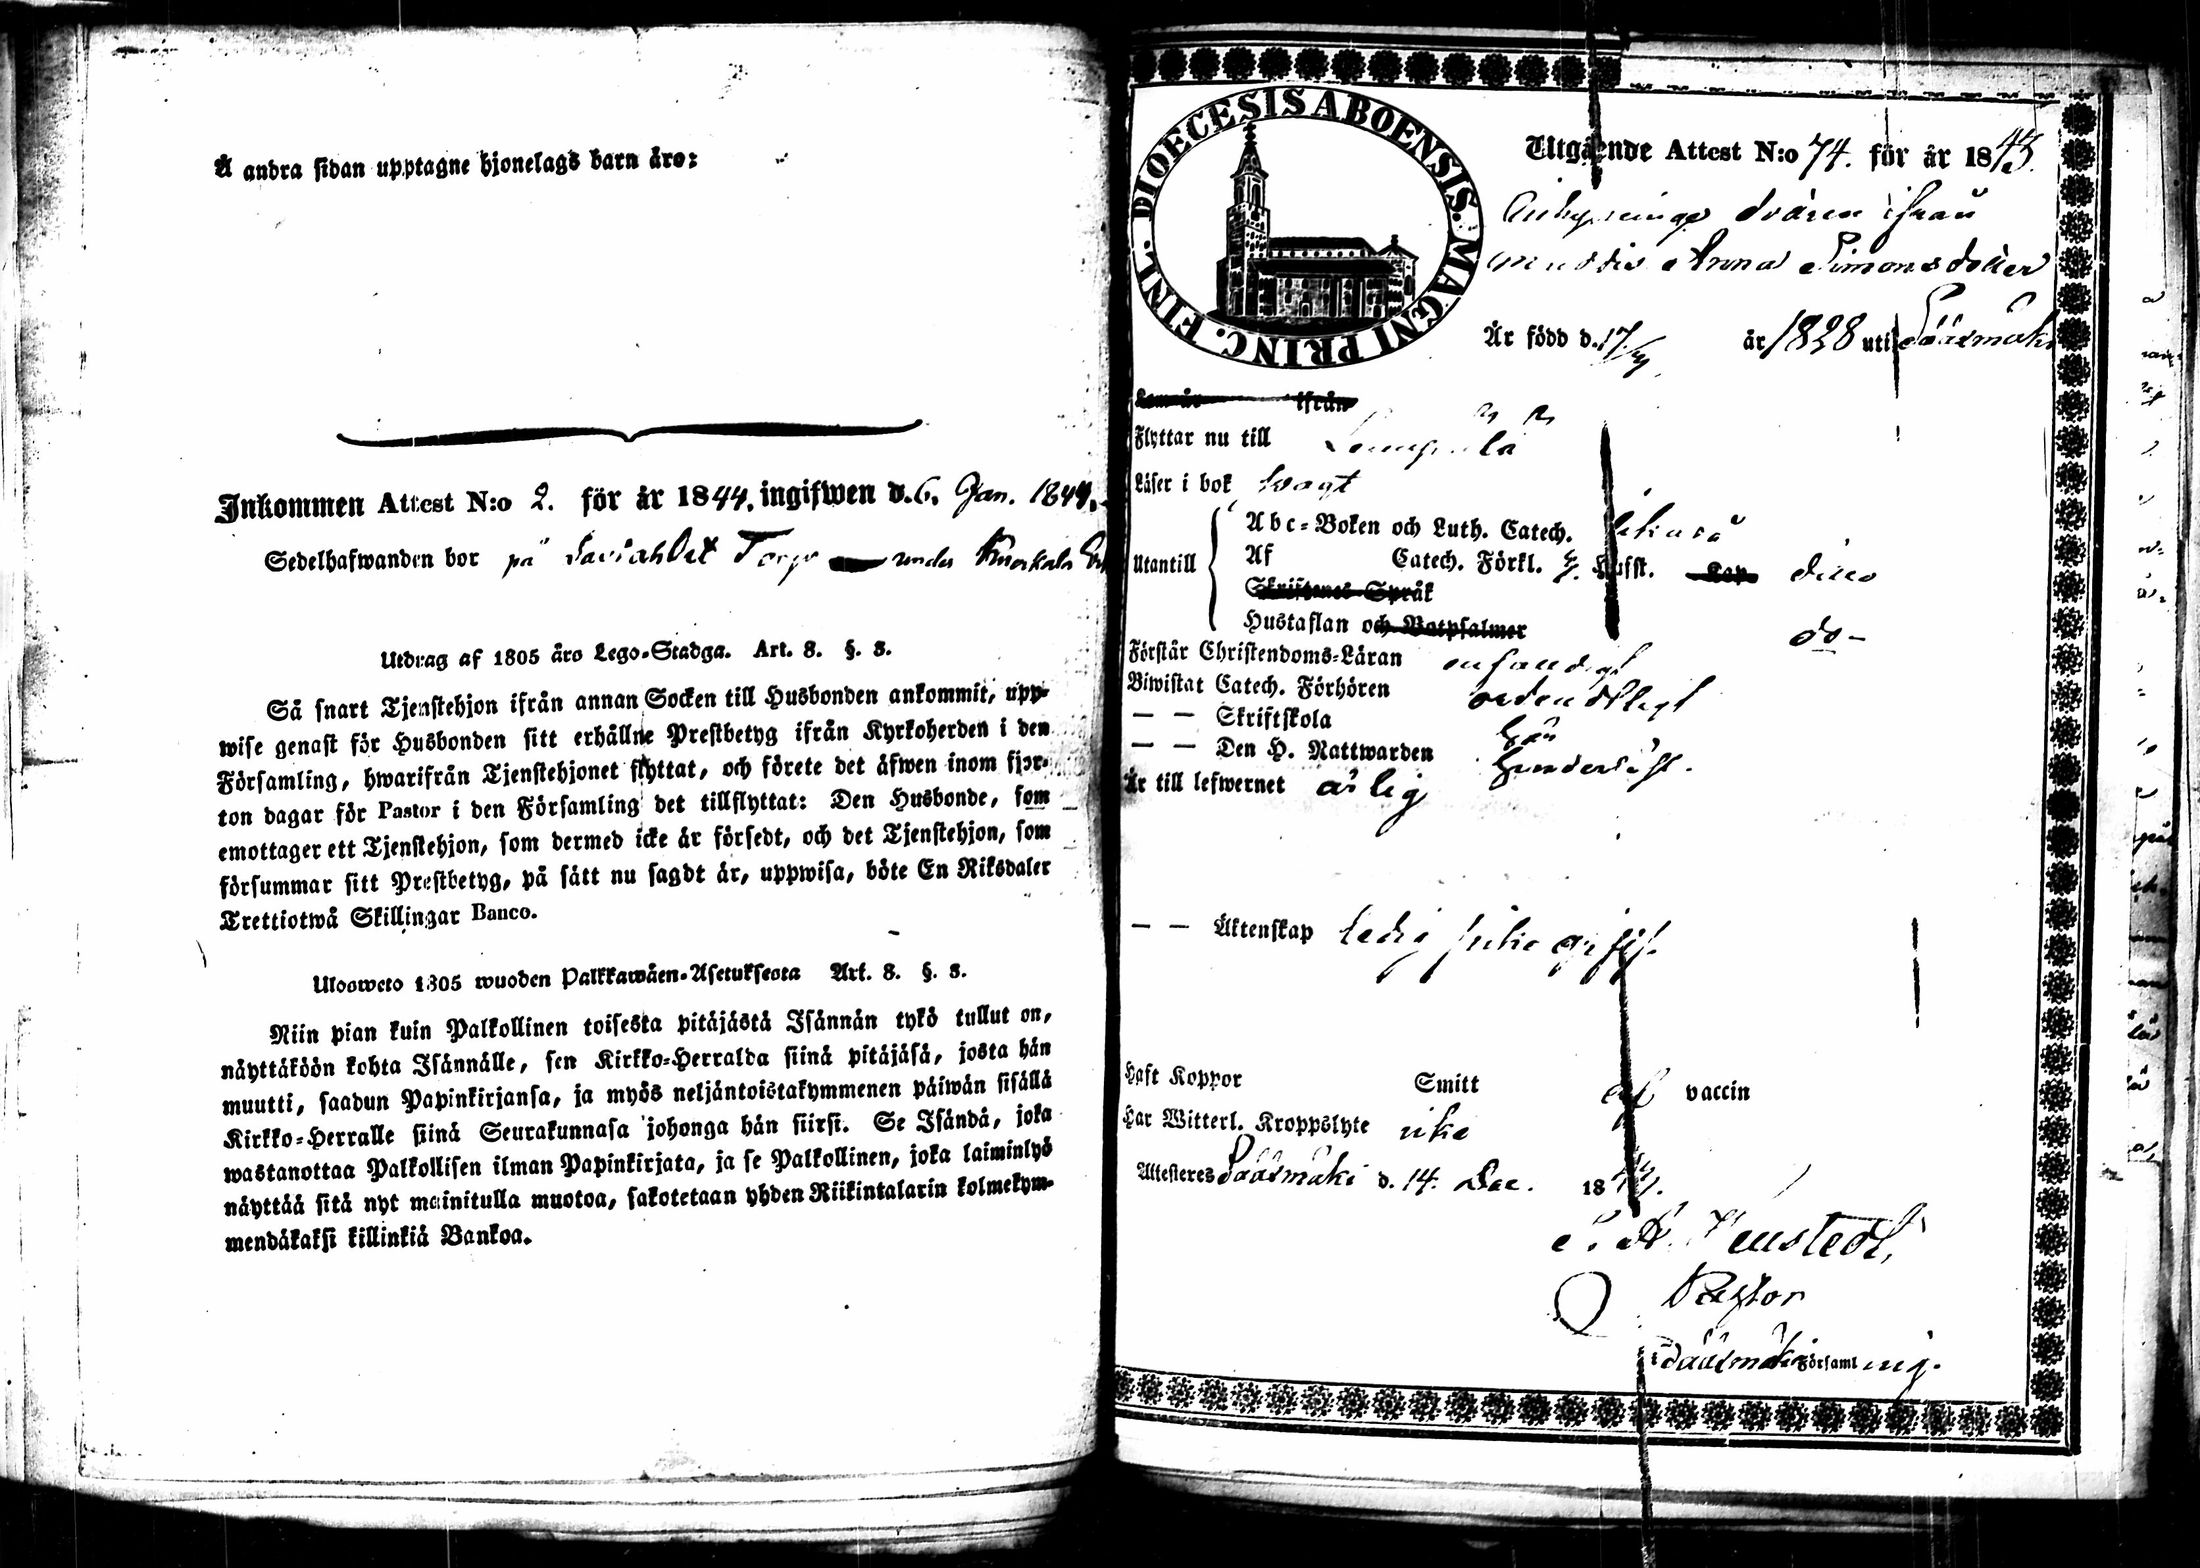 Å andra sidan upptagne hjonelags barn äro:
Inkommen Attest N:o 2. för år 1844, ingifwen d. 6. Jan. 1844.
Sedelhafwanden bor på Torp under
Utdrag af 1805 års Lego-Stadga. Art. 8. §. 3.
Så snart Tjenstehjon ifrån annan Socken till Husbonden ankommit, upp-
wise genast för Husbonden sitt erhållne Prestbetyg ifrån Kyrkoherden i den
Församling, hwarifrån Tjenstehjonet flyttat, och förete det äfwen inom fjor-
ton dagar för Pastor i den Församling det tillflyttat: Den Husbonde, som
emottager ett Tjenstehjon, som dermed icke är försedt, och det Tjenstehjon, som
försummar sitt Prestbetyg, på sätt nu sagdt är, uppwisa, böte En Riksdaler
Trettiotwå Skillingar Banco.
Ulosweto 1805 wuoden Palkkawäen-Asetuksesta Art. 8. §. 3.
Niin pian kuin Palkollinen toisesta pitäjästä Isännän tykö tullut on,
näyttäköön kohta Isännälle, sen Kirkko-Herralda siinä pitäjäsä, josta hän
muutti, saadun Papinkirjansa, ja myös neljäntoistakymmenen päiwän sisällä
Kirkko-Herralle siinä Seurakunnasa johonga hän siirsi. Se Isändä, joka
wastanottaa Palkollisen ilman Papinkirjata, ja se Palkollinen, joka laiminlyö
näyttää sitä nyt mainitulla muotoa, sakotetaan yhden Riikintalarin kolmekym-
mendäkaksi killinkiä Bankoa.
DIOECESIS ABOENSIS. MAGNI PRINC. FINL.
Utgående Attest N:o 74. för år 1843.
ifrån
Anna Simonsdotter
Är född d. 17/ år 1828 uti Sääxmäki
ifrån
Flyttar nu till Lempälä
Läser i bok swagt
Utantill
Abc-Boken och Luth. Catech. likaså
Af Catech. Förkl. Hufst. dito
Skriftenes Språk
Hustaflan och Botpsalmer do-
Förstår Christendoms-Läran enfaldigt
Biwistat Catech. Förhören ordentligt
— — Skriftskola
— — Den H. Nattwarden
Är till lefwernet ärlig
— — Äktenskap ledig
Haft Koppor Smitt af vaccin
Har Witterl. Kroppslyte icke
Attesteres Sääxmäki d. 14. Dec. 1843.
Pastor
i Sääxmäki Församling.